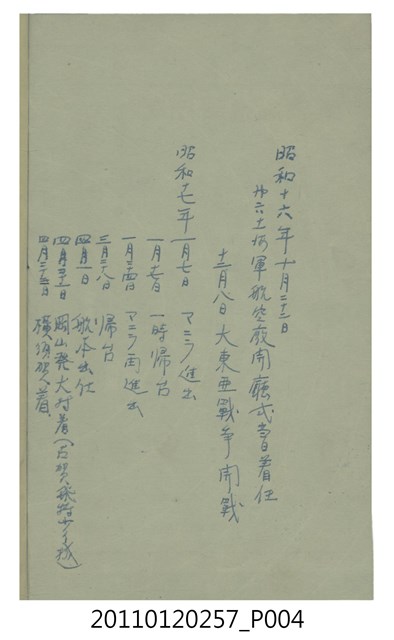 昭和十六年十月二十二日
㐧六十一海軍航空廠開廳式當日着任
十二月八日 大東亜戰争開戰
昭和十七年一月七日 マニラ進出
一月十七日 一時帰台
一月二十四日 マニラ再進出
三月二十八日 帰台
四月一日 航本出仕
四月二十一日 岡山発大村着
四月二十三日 横須賀着
20110120257_P004